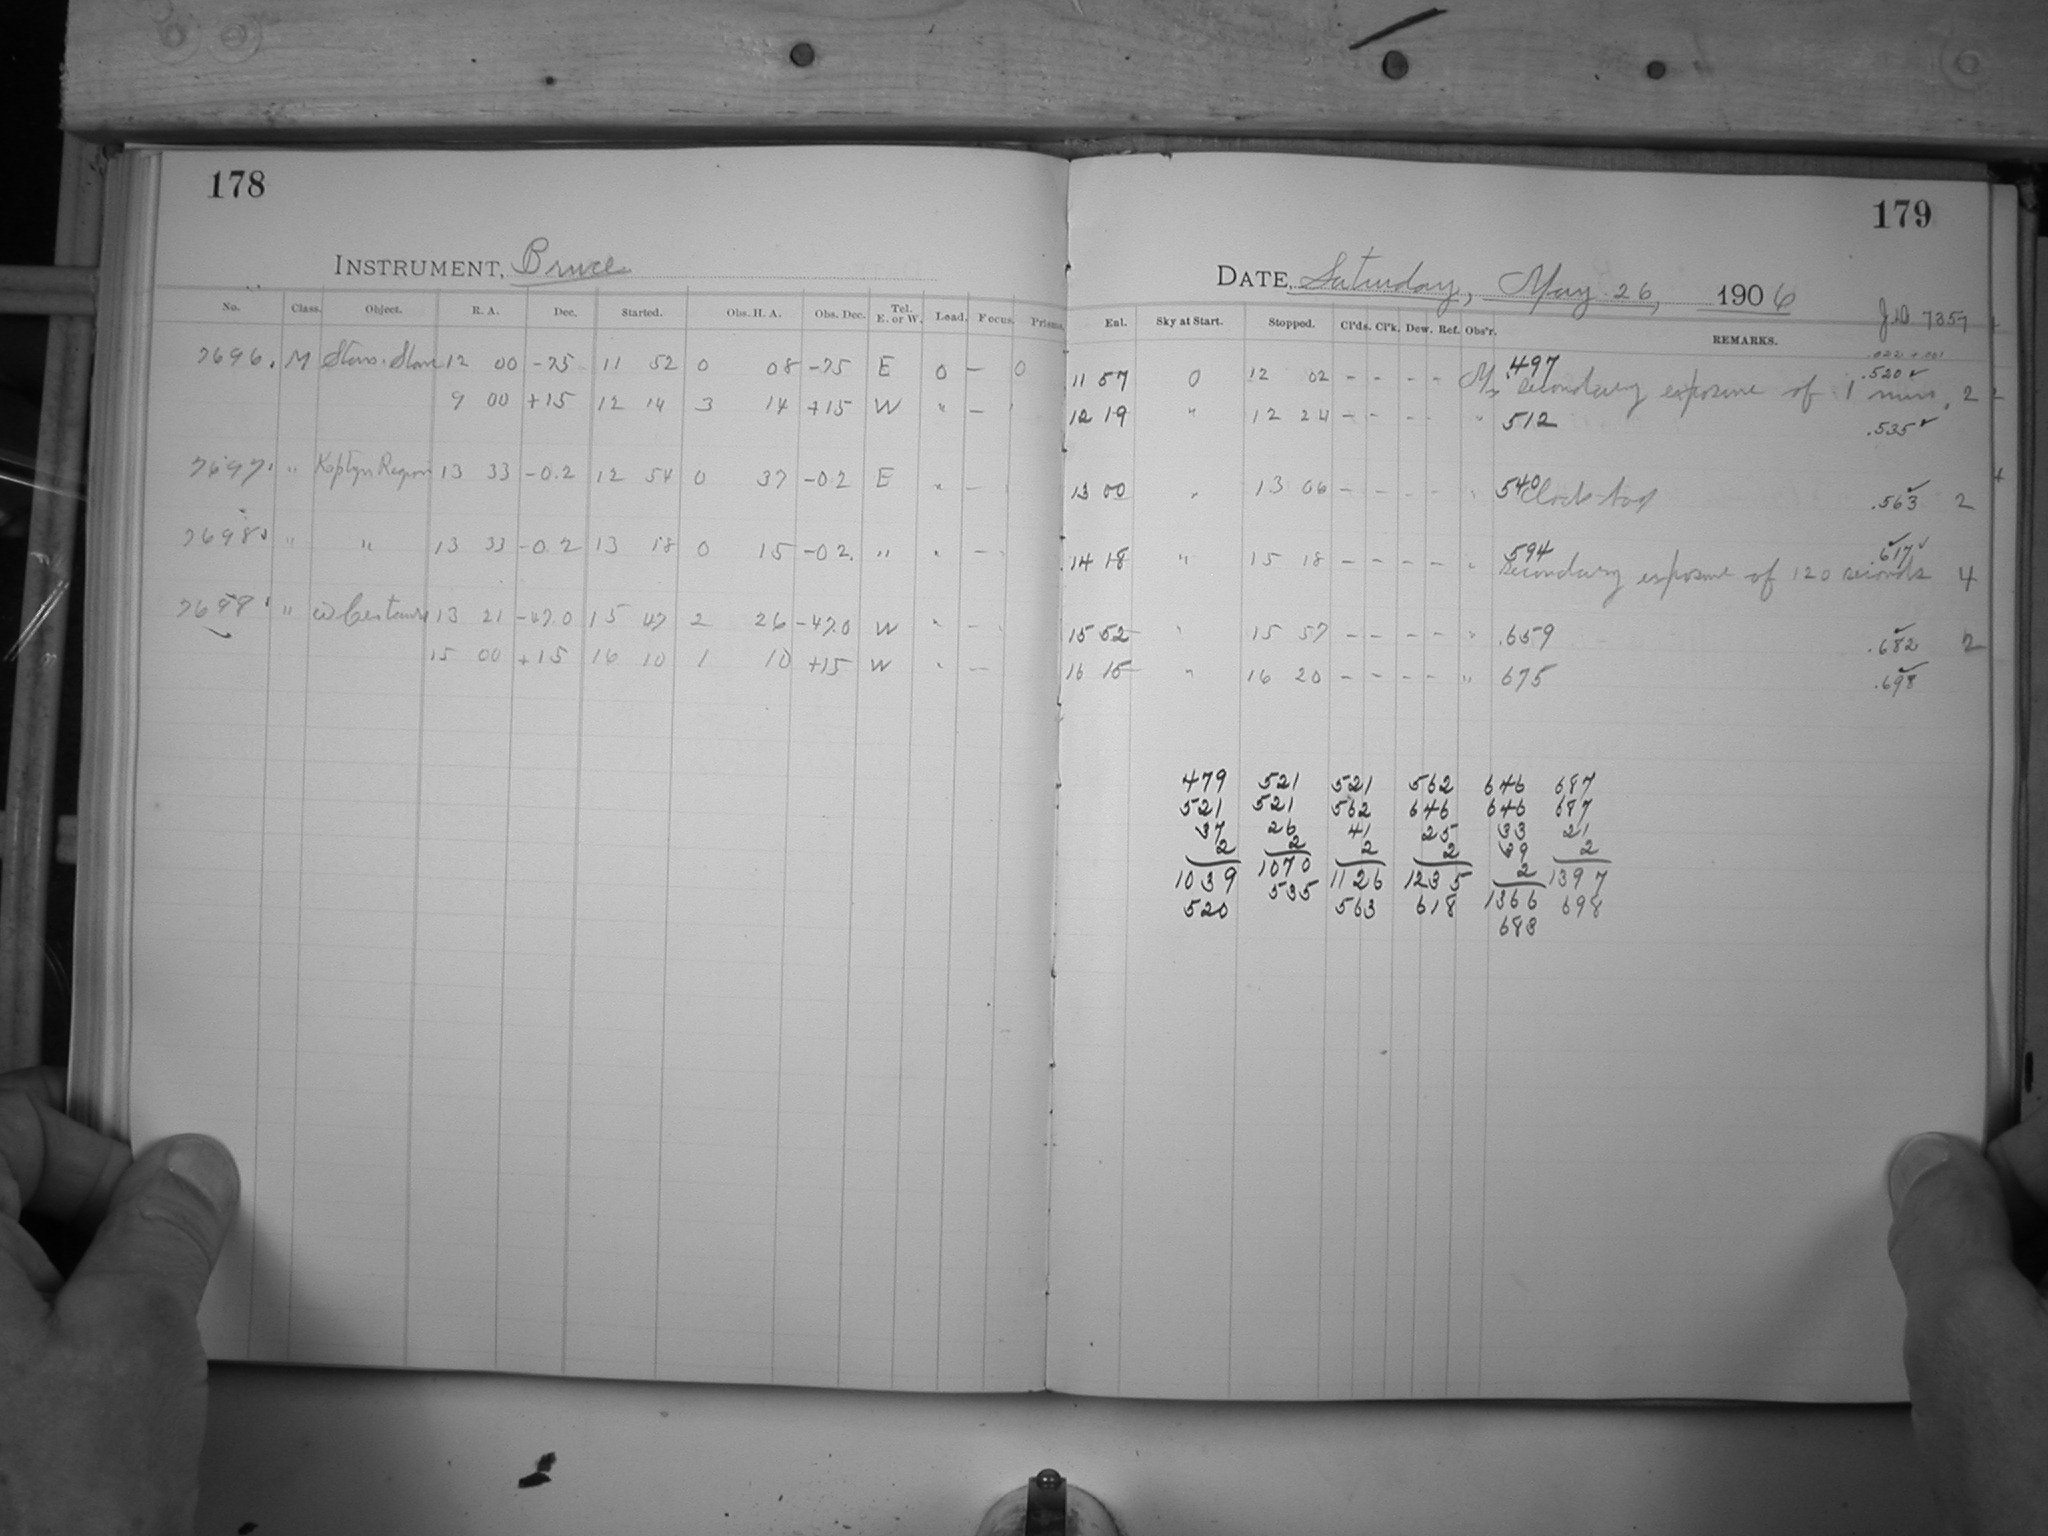 178
INSTRUMENT, Bruce
No. Class. Object. R. A. Dec. Started. Obs. H. A. Obs. Dec. Tel. E. or W. Lead. Focus. Prisms.
7696. M 12 00 -75 11 52 0 08 -75 E 0 - 0
9 00 +15 12 14 3 14 +15 W " -
7697. " Kaptyn Region 13 33 -0.2 12 54 0 37 -02 E " -
7698 " " 13 33 -0.2 13 18 0 15 -02. " " -
7698 " ω Centauri 13 21 -47.0 15 47 2 26 -47.0 W " -
15 00 +15 16 10 1 10 +15 W " -
179
DATE, Saturday, May 26, 1906
J.D 7357
Enl. Sky at Start. Stopped. Cl'ds. Cl'k. Dew. Ref. Obs'r. REMARKS.
.022 + .001
.497 .520 ✓
11 57 0 12 02 - - - - Secondary exposure of 1 min. 2
12 19 " 12 24 - - - - " 512 .535 ✓
13 00 " 13 06 - - - - " 540 Clock stop .563 ✓ 2
594 .617 ✓
14 18 " 15 18 - - - - " Secondary exposure of 120 seconds 4
15 52 " 15 57 - - - - " .659 .682 ✓ 2
16 15 " 16 20 - - - - " 675 .698 ✓
479 521 521 562 646 687
521 521 562 646 646 687
37 26 41 25 33 21
2 2 2 2 39 2
1039 1070 1126 1235 2 1397
520 535 563 618 1366 698
683